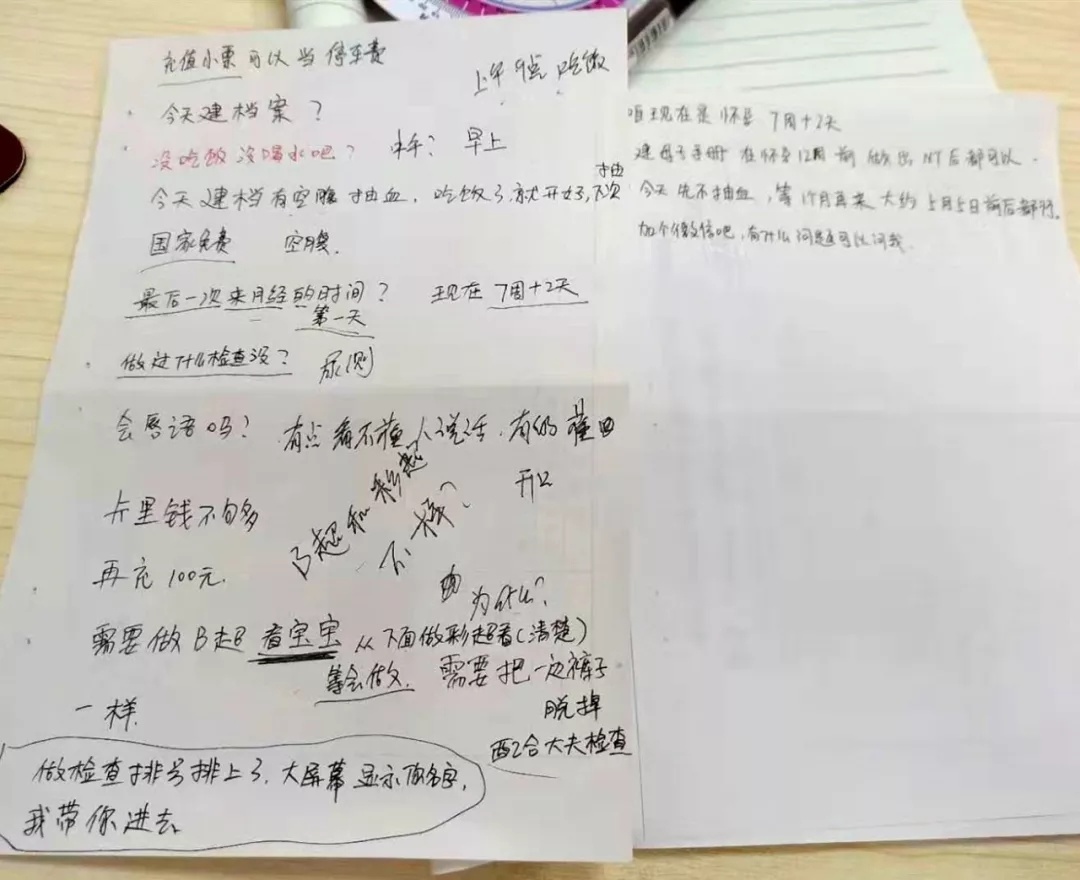 充值小票可以当停车费
上午9点吃饭
今天建档案？
没吃饭没喝水吧？ 早上
今天建档有空腹抽血，吃饭了就开好，下次抽
国家免费 空腹.
最后一次来月经的时间？ 现在7周+2天
第一天
做过什么检查没？ 尿测
会唇语吗？ 有点看不懂人说话，有的
开口
B超和彩超
不一样？
卡里钱不够
再充100元.
为什么？
需要做B超看宝宝 从下面做彩超看(清楚)
等会做. 需要把一边裤子
脱掉
配合大夫检查
一样.
做检查排号排上了，大屏幕显示你名字，
我带你进去
咱现在是怀孕 7周+2天
建母子手册 在怀孕12周前 做出NT后都可以.
今天先不抽血，等1个月再来 大约5月5日前后都行.
加个微信吧，有什么问题可以问我.